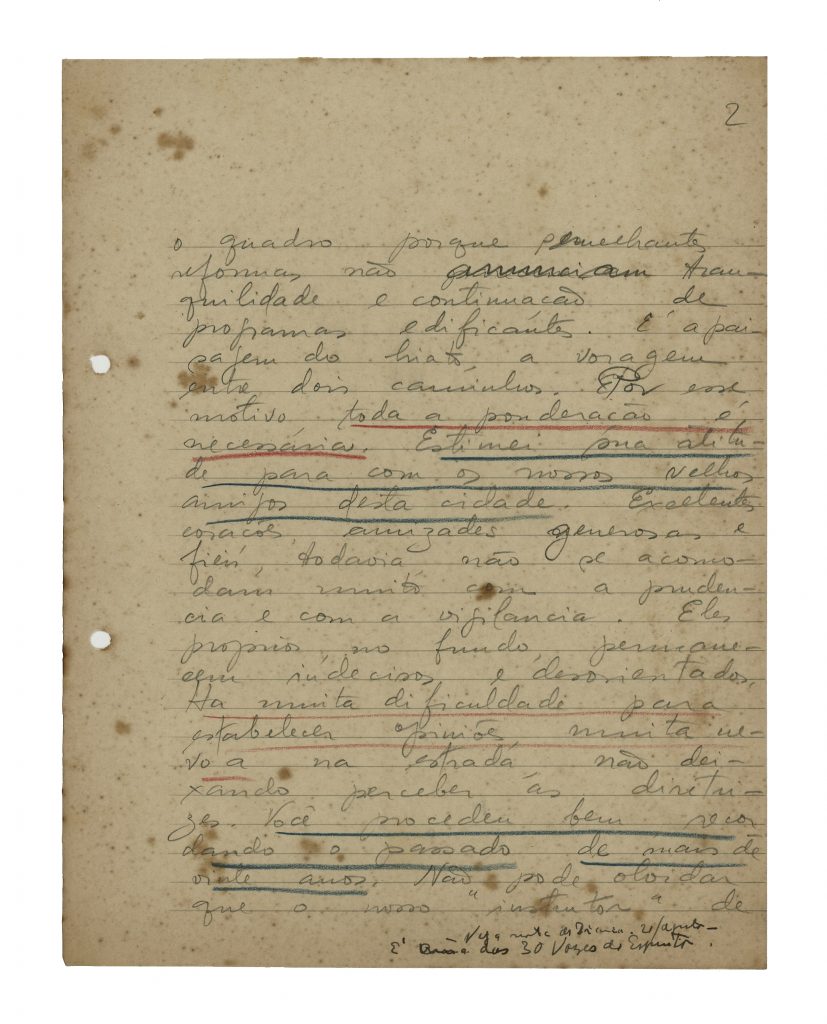 2
o quadro porque semelhantes
reformas não anunciam tran-
quilidade e continuação de
programas edificantes. É a pai-
sagem do hiato a voragem
entre dois caminhos. Por esse
motivo toda a ponderação é
necessária. Estimei sua atitu-
de para com os nossos velhos
amigos desta cidade. Excelentes
corações, amizades generosas e
fieis, todavia não se acomo-
dam muito com a pruden-
cia e com a vigilancia. Eles
proprios, no fundo, permane-
cem indecisos e desorientados.
Ha muita dificuldade para
estabelecer opiniões, muita ne-
voa na estrada não dei-
xando perceber as diretri-
zes. Você procedeu bem recor
dando o passado de mais de
vinte anos. Não pode olvidar
que o nosso "instrutor" de
Veja nota de
É das 30 Vozes do Espirito.